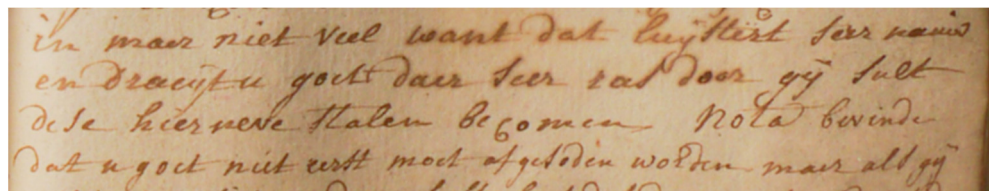 in maer niet veel want dat luijstert seer nauw
en draeijt u goet daer seer ras door gij sult
dese hierneve stalen becomen Nota bevinde
dat u goet niet eerst moet afgesoden worden maer als gij